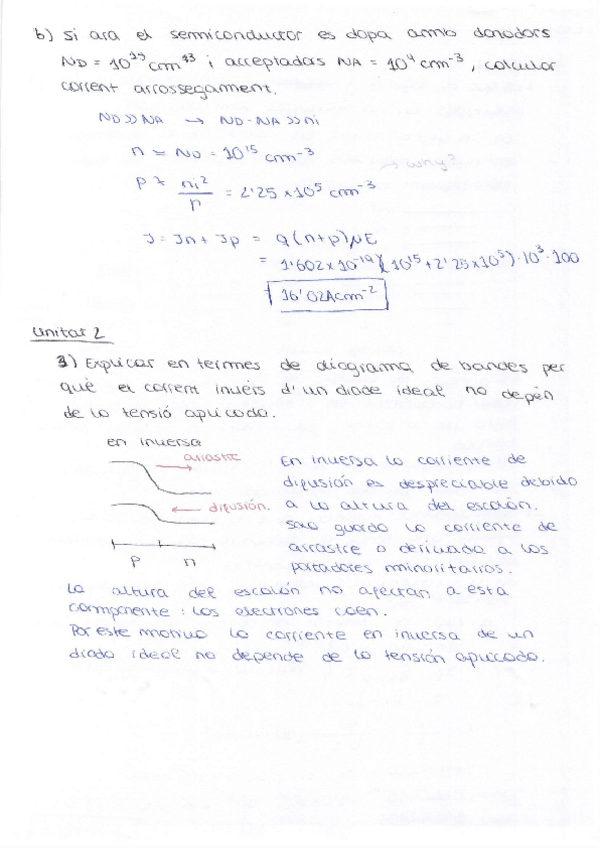 b) Si ara el semiconductor es dopa amb donadors
ND = 10¹⁵ cm⁻³ i acceptadas NA = 10⁴ cm⁻³, calcular
corrent arrossegament.
ND >> NA → ND - NA >> ni
n ≃ ND = 10¹⁵ cm⁻³
→ why?
P ≃ ni²/n = 2'25 × 10⁵ cm⁻³
J = Jn + Jp = q(n+p)μE
= 1'602 × 10⁻¹⁹ (10¹⁵ + 2'25 × 10⁵) · 10³ · 100
16'02 A cm⁻²
Unitat 2
3) Explicar en termes de diagrama de bandes per
què el corrent invers d'un diode ideal no depèn
de la tensió aplicada.
en inversa
arrastre
difusión.
P n
En inversa la corriente de
difusión es despreciable debido
a la altura del escalón.
Solo guardo la corriente de
arrastre o derivada a los
portadores minoritarios.
La altura del escalón no afectan a esta
componente: los electrones caen.
Por este motivo la corriente en inversa de un
diodo ideal no depende de la tensión aplicada.